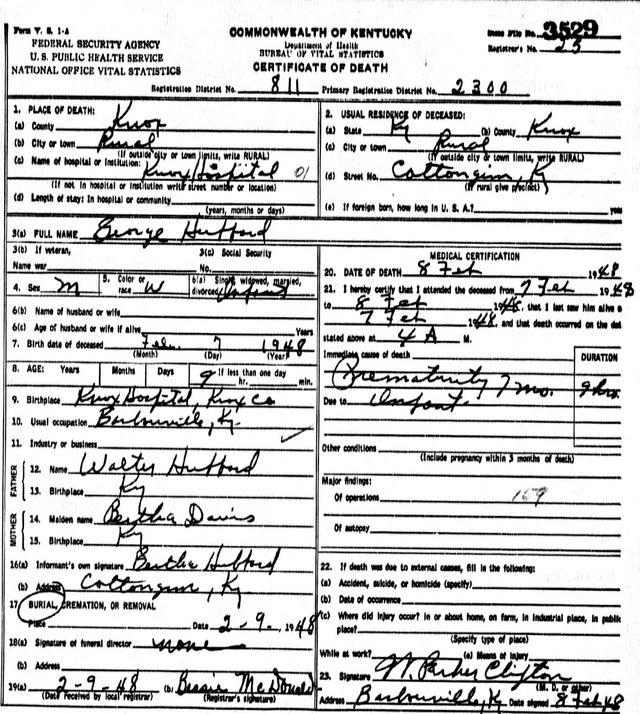 Form V. S. 1-A
COMMONWEALTH OF KENTUCKY
State File No. 3529
FEDERAL SECURITY AGENCY
Department of Health
Registrar's No. 25
U. S. PUBLIC HEALTH SERVICE
BUREAU OF VITAL STATISTICS
NATIONAL OFFICE VITAL STATISTICS
CERTIFICATE OF DEATH
Registration District No. 811 Primary Registration District No. 2300
1. PLACE OF DEATH:
(a) County Knox
(b) City or town Rural
(If outside city or town limits, write RURAL)
(c) Name of hospital or institution: Knox Hospital 01
(If not in hospital or institution write street number or location)
(d) Length of stay: In hospital or community
(years, months or days)
2. USUAL RESIDENCE OF DECEASED:
(a) State Ky (b) County Knox
(c) City or town Rural
(If outside city or town limits, write RURAL)
(d) Street No. Cottongum, K
(If rural give precinct)
(e) If foreign born, how long in U. S. A.? years
3(a) FULL NAME George Hubbard
3(b) If veteran, 3(c) Social Security
Name war No.
4. Sex M 5. Color or race W 6(a) Single, widowed, married, divorced Infant
6(b) Name of husband or wife
6(c) Age of husband or wife if alive Years
7. Birth date of deceased Feb. 7 1948
(Month) (Day) (Year)
8. AGE: Years Months Days If less than one day
9 hr. min.
9. Birthplace Knox Hospital, Knox Co
10. Usual occupation Barbourville, Ky.
11. Industry or business
FATHER
12. Name Walter Hubbard
13. Birthplace Ky
MOTHER
14. Maiden name Bertha Davis
15. Birthplace Ky
16(a) Informant's own signature Bertha Hubbard
(b) Address Cottongum, Ky
17 BURIAL, CREMATION, OR REMOVAL
Place Date 2-9- 1948
18(a) Signature of funeral director none
(b) Address
19(a) 2-9-48 (b) Bessie McDonald
(Date received by local registrar) (Registrar's signature)
MEDICAL CERTIFICATION
20. DATE OF DEATH 8 Feb 1948
21. I hereby certify that I attended the deceased from 7 Feb 1948
to 8 Feb 1948, that I last saw him alive o
7 Feb 1948, and that death occurred on the dat
stated above at 4 A M.
Immediate cause of death DURATION
Prematurity 7 mo. 9 hrs.
Due to Infant.
Other conditions
(Include pregnancy within 3 months of death)
Major findings:
Of operations 159
Of autopsy
22. If death was due to external causes, fill in the following:
(a) Accident, suicide, or homicide (specify)
(b) Date of occurrence
(c) Where did injury occur? In or about home, on farm, in industrial place, in public
place?
(Specify type of place)
While at work? (e) Means of injury
23. Signature W Parker Clifton
(M. D. or other)
Address Barbourville, Ky Date signed 8 Feb 48